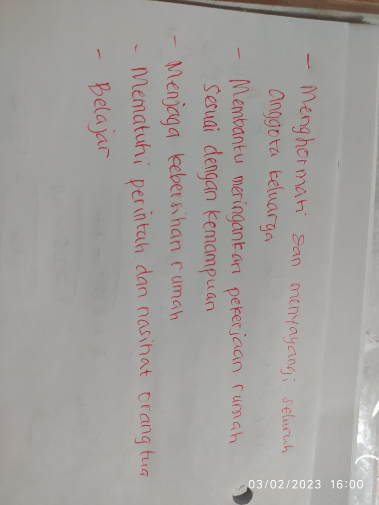 - Menghormati dan menyayangi seluruh
anggota keluarga
- Membantu meringankan pekerjaan rumah
sesuai dengan kemampuan
- Menjaga kebersihan rumah
- Mematuhi perintah dan nasihat orang tua
- Belajar
03/02/2023 16:00